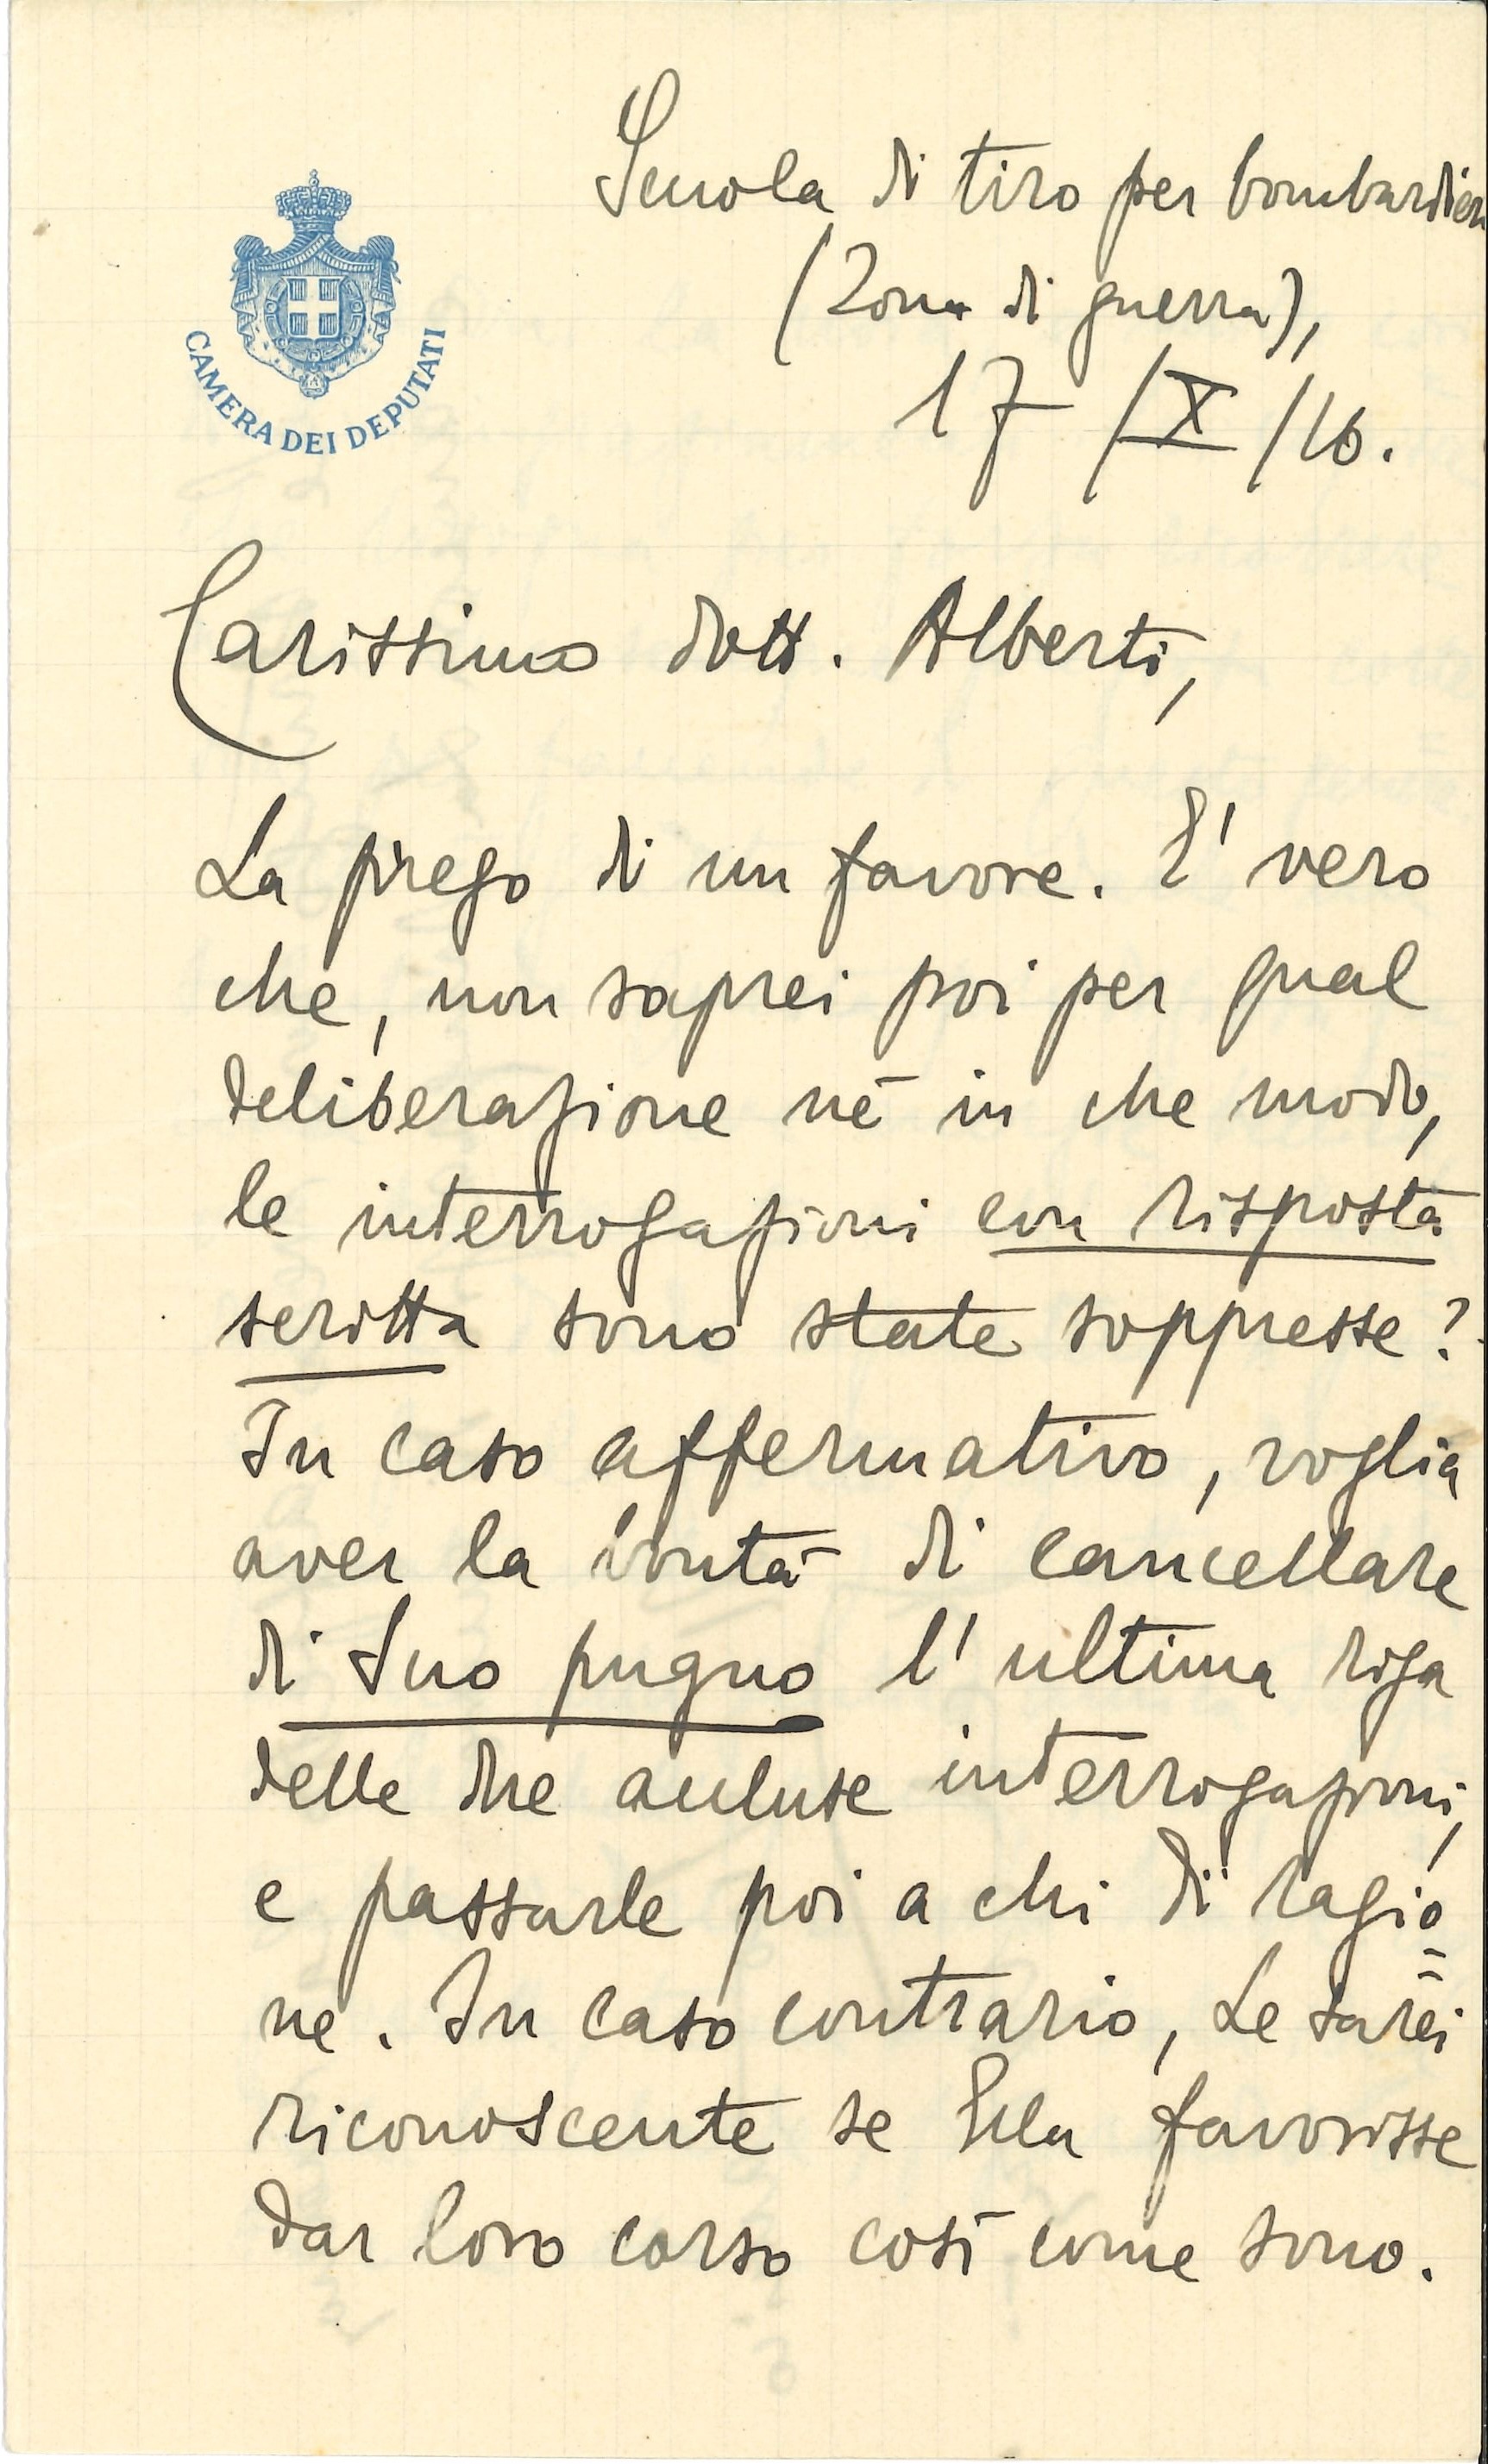 CAMERA DEI DEPUTATI
Scuola di tiro per bombardieri
(Zona di guerra),
17/X/16.
Carissimo dott. Alberti,
La prego di un favore. E' vero
che, non saprei poi per qual
deliberazione nè in che modo,
le interrogazioni con risposta
scritta sono state soppresse?
In caso affermativo, voglia
aver la bontà di cancellare
di Suo pugno l'ultima riga
delle due accluse interrogazioni,
e passarle poi a chi di ragio=
ne. In caso contrario, Le sarei
riconoscente se Ella favorisse
dar loro corso così come sono.